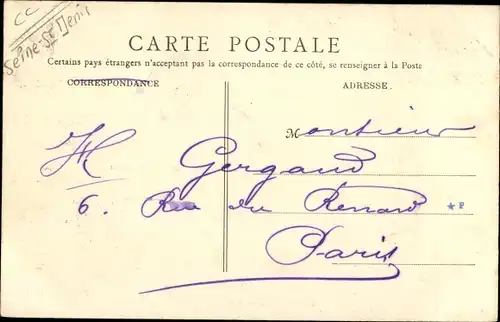 CC
Seine-St Denis
CARTE POSTALE
Certains pays étrangers n'acceptant pas la correspondance de ce côté, se renseigner à la Poste
CORRESPONDANCE
ADRESSE.
Monsieur
H Gergaud
6. Rue du Renard
★ F
Paris